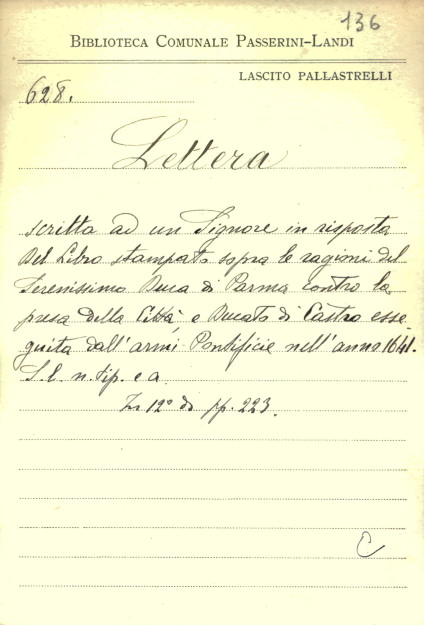 136
BIBLIOTECA COMUNALE PASSERINI-LANDI
LASCITO PALLASTRELLI
628.
Lettera
scritta ad un Signore in risposta
del Libro stampato sopra le ragioni del
Serenissimo Duca di Parma contro la
presa della Città, e Ducato di Castro ese-
guita dall'armi Pontificie nell'anno 1641.
S. l. n. tip. e a.
In 12° di pp. 223.
C